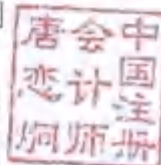 中国注册
会计师
唐恋炯